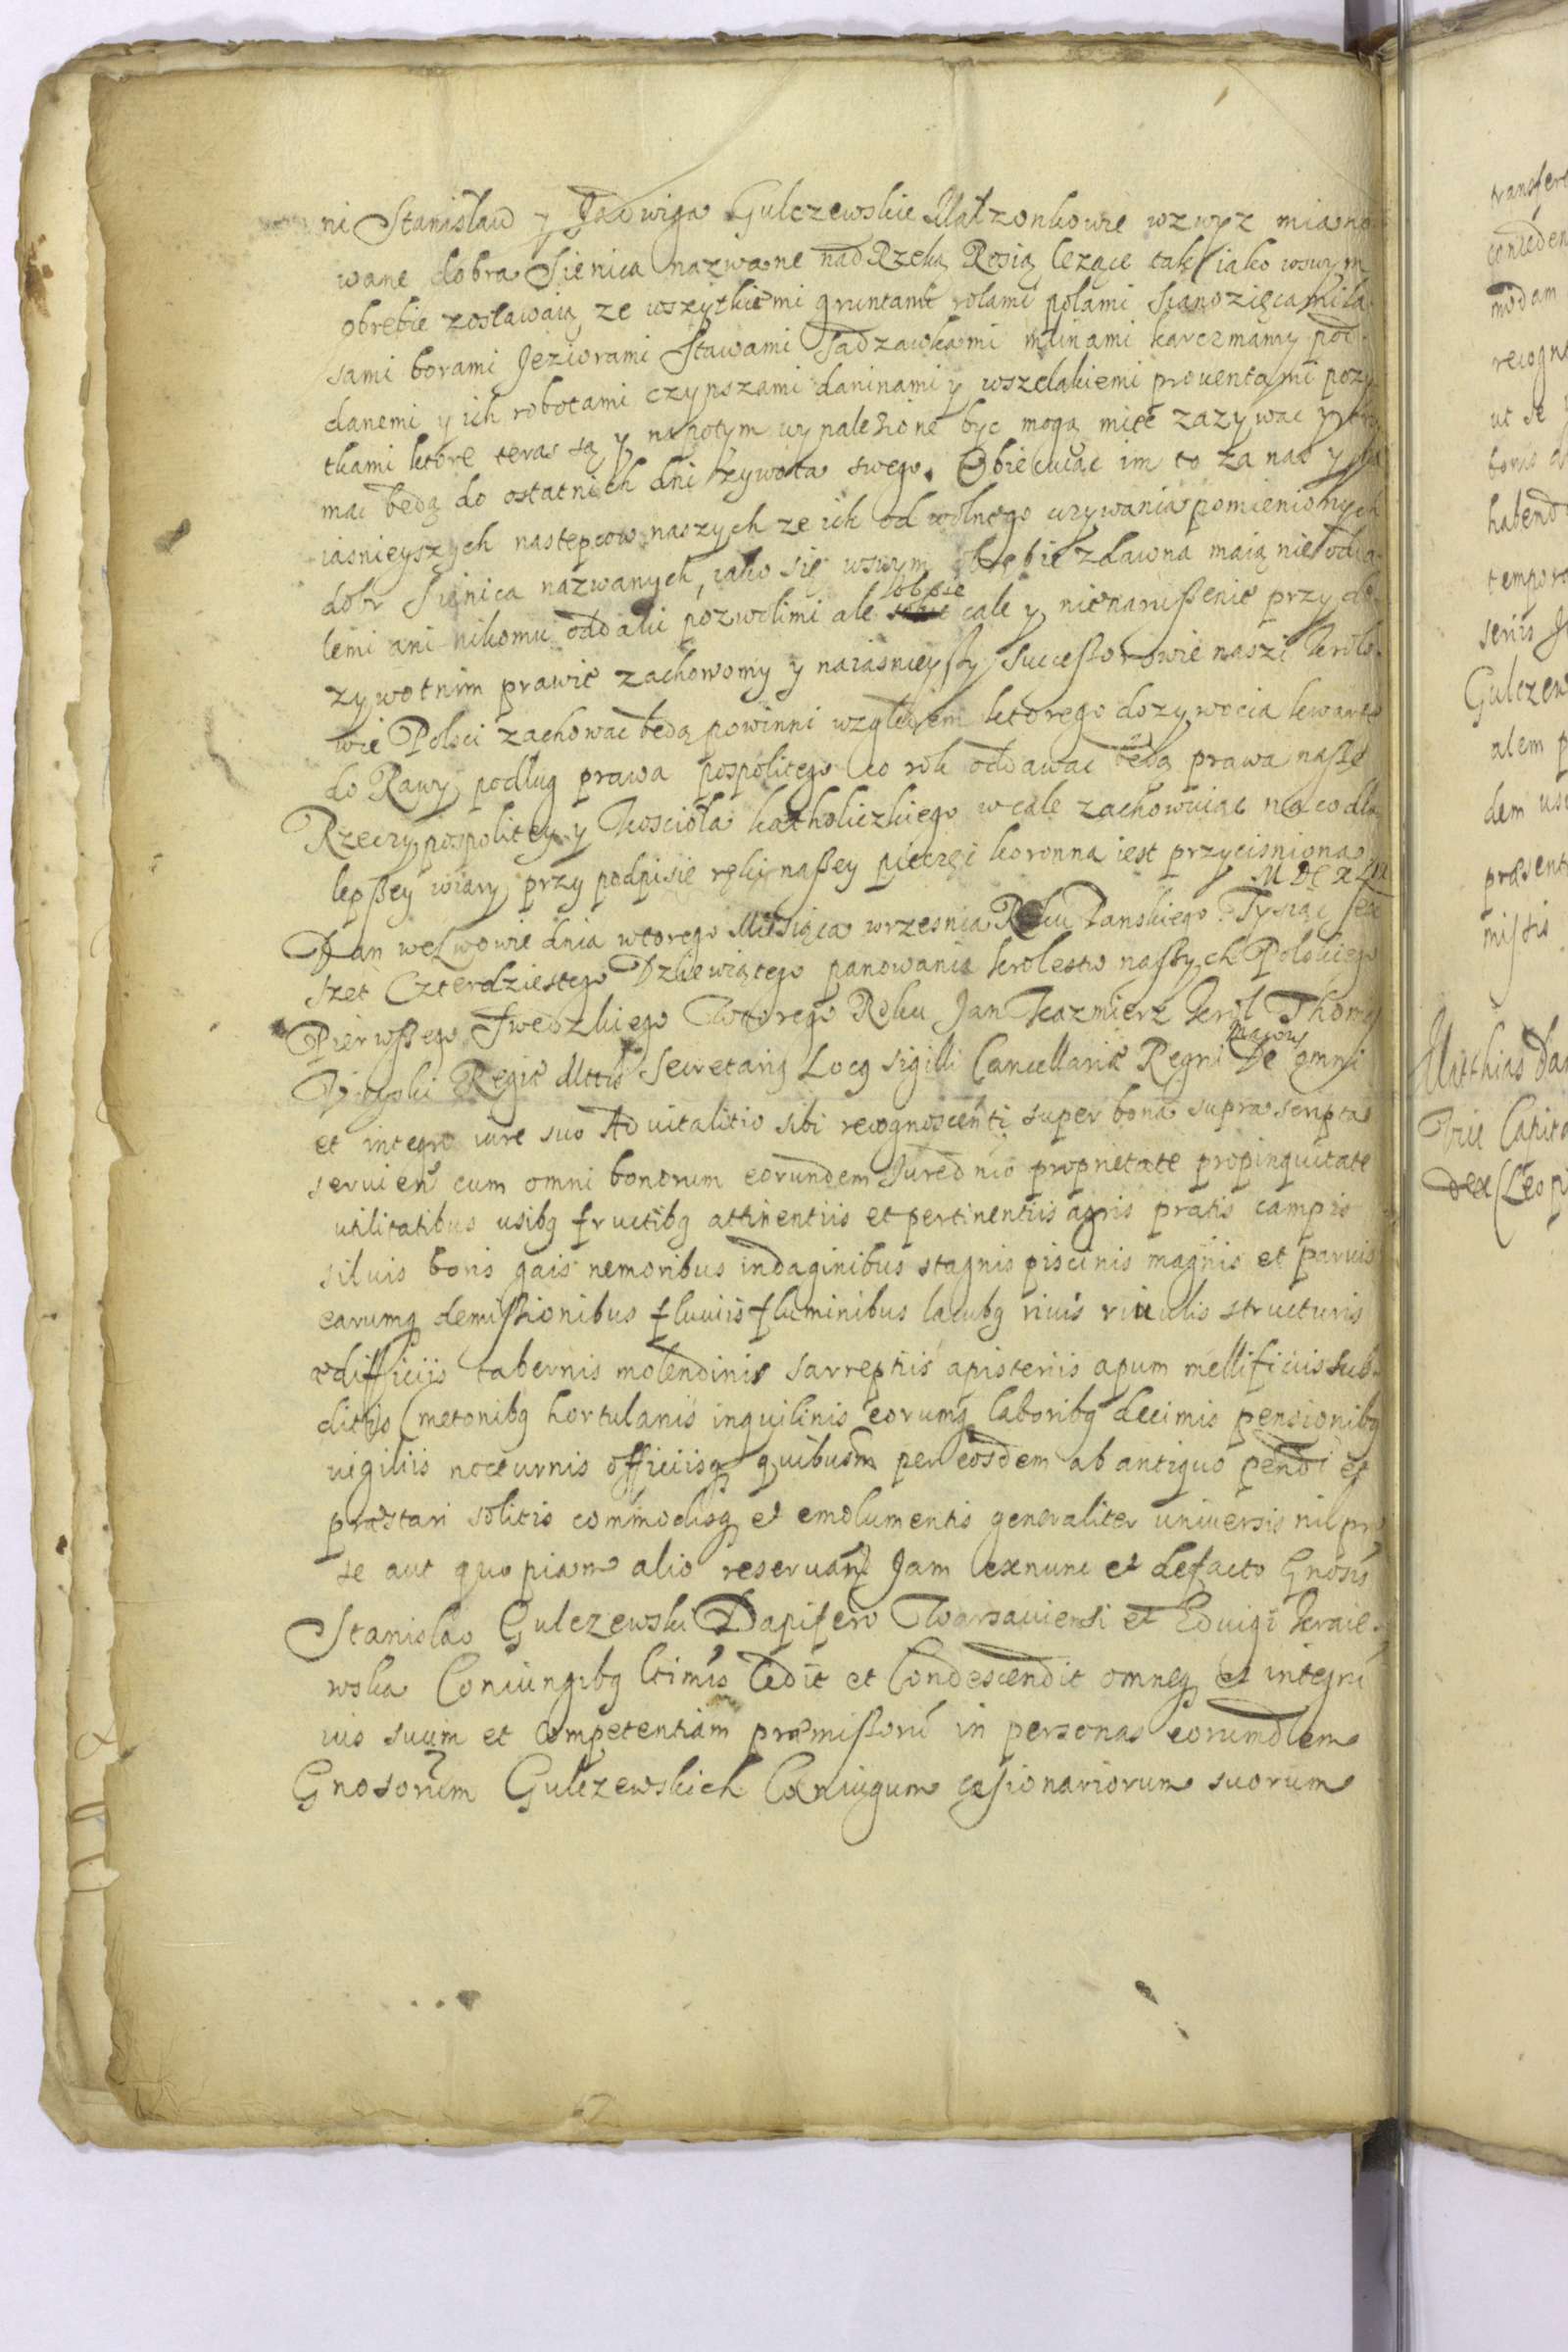 ni Stanisław y Jadwiga Gulczewskie Małzonkowie wzwyz miano
wane dobra Sienica nazwane nad Rzeką Rosią lezące tak iako wswym
obrębie zostawaią ze wszytkiemi gruntami rolami polami sianozięcami la
sami borami Jeziorami stawami sadzawkami młinami karczmamy pod
danemi y ich robotami czynszami daninami y wszelakiemi prouentami pozy
tkami ktore teras są y napotym wynalezione byc mogą miec zazywac y
mac będą do ostatnich dni zywota swego. Obiecuiąc im to za nas y
iasnieyszych następcow naszych ze ich od wolnego uzywania pomienionych
dobr Sienica nazwanych, iako się wswym obrębie zdawna maią nie odda
lemi ani nikomu oddalic pozwolimi ale obsie cale y nienarußenie przy do
zywotnim prawie zachowomy y naiasnieyßy Succeßorowie naszi Krolo
wie Polsci zachowac będą powinni względem ktorego dozywocia kwartę
do Rawy podług prawa pospolitego co rok oddawac będą prawa naße
Rzeczypospolitey y Koscioła katholiczkiego wcale zachowuiąc na co dla
lepßey wiary przy podpisie ręki naßey pieczęc koronna iest przycisniona
MDCXLIX
Dan we Lwowie dnia wtorego Miesiąca wrzesnia Roku Panskiego Tysiąc sze
szet Czterdziestego Dziewiątego panowania krolestw naßych Polskiego
Pierwßego Swedzkiego Wtorego Roku Jan Kazmierz Krol Thomas
Uieyski Regię Mttis Secretarig Locg sigilli Cancellarię Regni Maioris De omni
et integro iure suo Aduitalitio sibi recognoscenti super bona suprascripta
seruien cum omni bonorum eorundem Jure dnio proprietate propinquitate
utilitatibus usibg fructibg attinentiis et pertinentiis agris pratis campis
siluis boris gais nemoribus indaginibus stagnis piscinis magnis et paruis
earumq demißionibus fluuiis fluminibus lacubg riuis riuulis structuris
ædifficiis tabernis molendinis sarreptiis apisteriis apum mellificiis sub
ditis Cmetonibg hortulanis inquilinis eorumq laboribg decimis pensionibg
uigiliis nocturnis officiisq quibusm per eosdem ab antiquo pendi et
præstari solitis commodisq et emolumentis generaliter uniuersis nil pro
se aut quopiam alio reseruan Jam exnunc et defacto Gnosis
Stanislao Gulczewski Dapifero Warsauiensi et Eduigi Kraie
wska Coniungibg ltimis Cedit et Condescendit omneq et integru
ius suum et Competentiam præmißoru in personas eorumdem
Gnosorum Gulczewskich Coniugum cesionariorum suorum